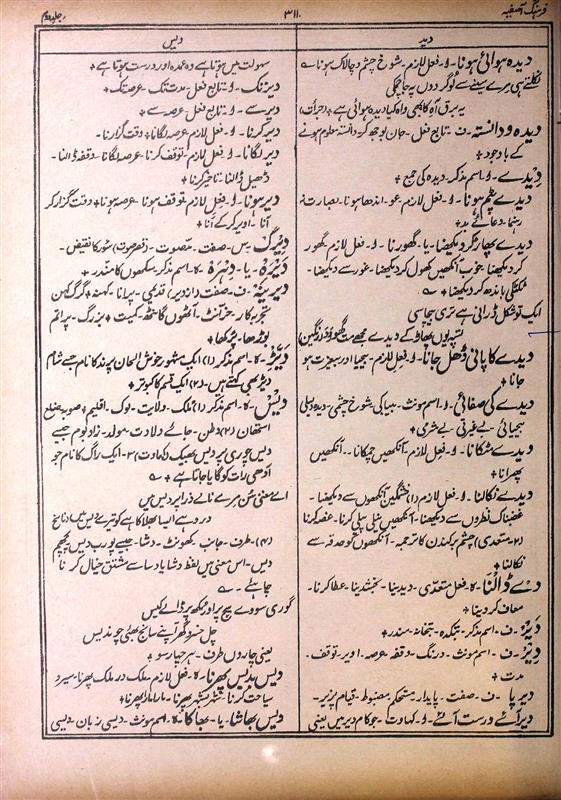 فرہنگ آصفیہ
۳۱۱
جلد دوم
دید
دیدہ ہوائی ہونا۔ ا۔ فعل لازم۔ شوخ چشم و چالاک ہونا ؎
نکلتے ہی مرے سینے سے لوگردوں پہ جا چمکی
یہ برق آہ کا بھی واہ کیا دیدہ ہوائی ہے (جرأت)
دیدہ و دانستہ۔ ف۔ تابع فعل۔ جان بوجھ کر۔ دانستہ معلوم ہونے
کے باوجود +
دیدے۔ ا۔ اسم مذکر۔ دیدہ کی جمع +
دیدے پٹم ہونا۔ ا۔ فعل لازم۔ عو۔ اندھا ہونا۔ بصارت نہ
رہنا۔ دعائے بد +
دیدے پھاڑ کر دیکھنا۔ یا۔ گھورنا۔ ا۔ فعل لازم۔ گھور
کر دیکھنا۔ خوب آنکھیں کھول کر دیکھنا۔ غور سے دیکھنا۔
ٹکٹکی باندھ کر دیکھنا + ؎
ایک تو شکل ڈرانی ہے تری
کے دیدے مجھے مت گھور
دیدے کا پانی ڈھل جانا۔ ا۔ فعل لازم۔ بیحیا اور بیغیرت ہو
جانا +
دیدے کی صفائی۔ ا۔ اسم مونث۔ بیباکی۔ شوخ چشمی۔ دیدہ دلیلی
بیحیائی۔ بے غیرتی۔ بے شرمی +
دیدے مٹکانا۔ ا۔ فعل لازم۔ آنکھیں چمکانا۔ آنکھیں
پھرانا +
دیدے نکالنا۔ ا۔ فعل لازم (۱) خشمگین آنکھوں سے دیکھنا۔
غضبناک نظروں سے دیکھنا۔ آنکھیں نیلی پیلی کرنا۔ غصہ کرنا
(۲۔ متعدی) چشم بر کندن کا ترجمہ۔ آنکھوں کو حدقہ سے
نکالنا +
دے ڈالنا۔ ہ۔ فعل متعدی۔ دیدینا۔ بخشدینا۔ عطا کرنا۔
معاف کر دینا +
دیر۔ ف۔ اسم مذکر۔ بتکدہ۔ بتخانہ۔ مندر +
دیر۔ ف۔ اسم مونث۔ درنگ۔ وقفہ۔ عرصہ۔ اویر۔ توقف۔
مدت +
دیر پا۔ ف۔ صفت۔ پایدار۔ مستحکم۔ مضبوط۔ قیام پزیر۔
دیر آئے درست آئے۔ ا۔ کہاوت۔ جو کام دیر میں یعنی
دیس
سہولت میں ہوتا ہے وہ عمدہ اور درست ہوتا ہے +
دیر تک۔ ا۔ تابع فعل۔ مدت تک۔ عرصہ تک +
دیر سے۔ ا۔ تابع فعل۔ عرصہ سے +
دیر کرنا۔ ا۔ فعل لازم۔ عرصہ لگانا۔ وقت گزارنا۔
دیر لگانا۔ ا۔ فعل لازم۔ توقف کرنا۔ عرصہ لگانا۔ وقفہ ڈالنا۔
ڈھیل ڈالنا۔ تاخیر کرنا +
دیر ہونا۔ ا۔ فعل لازم۔ توقف ہونا۔ عرصہ ہونا + وقت گزار کر
آنا۔ اویر کر کے آنا +
دیرگ۔ س۔ صفت۔ مصوت۔ نقیض۔
دیرہ۔ یا۔ دہرہ۔ ہ۔ اسم مذکر۔ سکھوں کا مندر +
دیرینہ۔ ف۔ صفت۔ قدیمی۔ پرانا۔ کہنہ + گرگ کہن
تجربہ کار۔ خرانٹ۔ آنٹھوں گانٹھ کمیت + بزرگ۔
بوڑھا۔ پرکھا +
دیڑ۔ ہ۔ اسم مذکر (۱) ایک مشہور خوش الحان پرند کا نام جسے شام
بھی کہتے ہیں۔ (۲) ایک قسم کا کبوتر +
دیس۔ ہ۔ اسم مذکر (۱) ملک۔ ولایت۔ لوک۔ اقلیم + صوبہ۔ ضلع
استھان (۲) وطن۔ جائے ولادت۔ مولد۔ زاد بوم جیسے
دیس چوری پردیس بھیک (کہاوت) ۳۔ ایک راگ کا نام جو
آدھی رات کو گایا جاتا ہے + ؎
اے مغنی سن مرے نالے ذرا پردیس میں
درد ہے ایسا بھلا کاہے کو تیرے دیس میں
(۴) طرف۔ جانب۔ کھونٹ۔ دشا۔ جیسے پورب دیس پچھم
دیس۔ اس معنی میں لفظ دشا یا دسا سے مشتق خیال کرنا
چاہئے۔ ؎
گوری سووے سیج پر اور مکھ پر ڈالے کیس
چل خسرو گھر آپنے سانج بھئی چوندیس
یعنی چاروں طرف۔ ہر چہار سو +
دیس بدیس پھرنا۔ ہ۔ فعل لازم۔ ملک در ملک پھرنا۔ سیر و
سیاحت کرنا۔ شہر بشہر پھرنا۔ مارا مارا پھرنا +
دیس بھاشا۔ یا۔ بھاکا۔ ہ۔ اسم مونث۔ دیسی زبان۔ دیسی